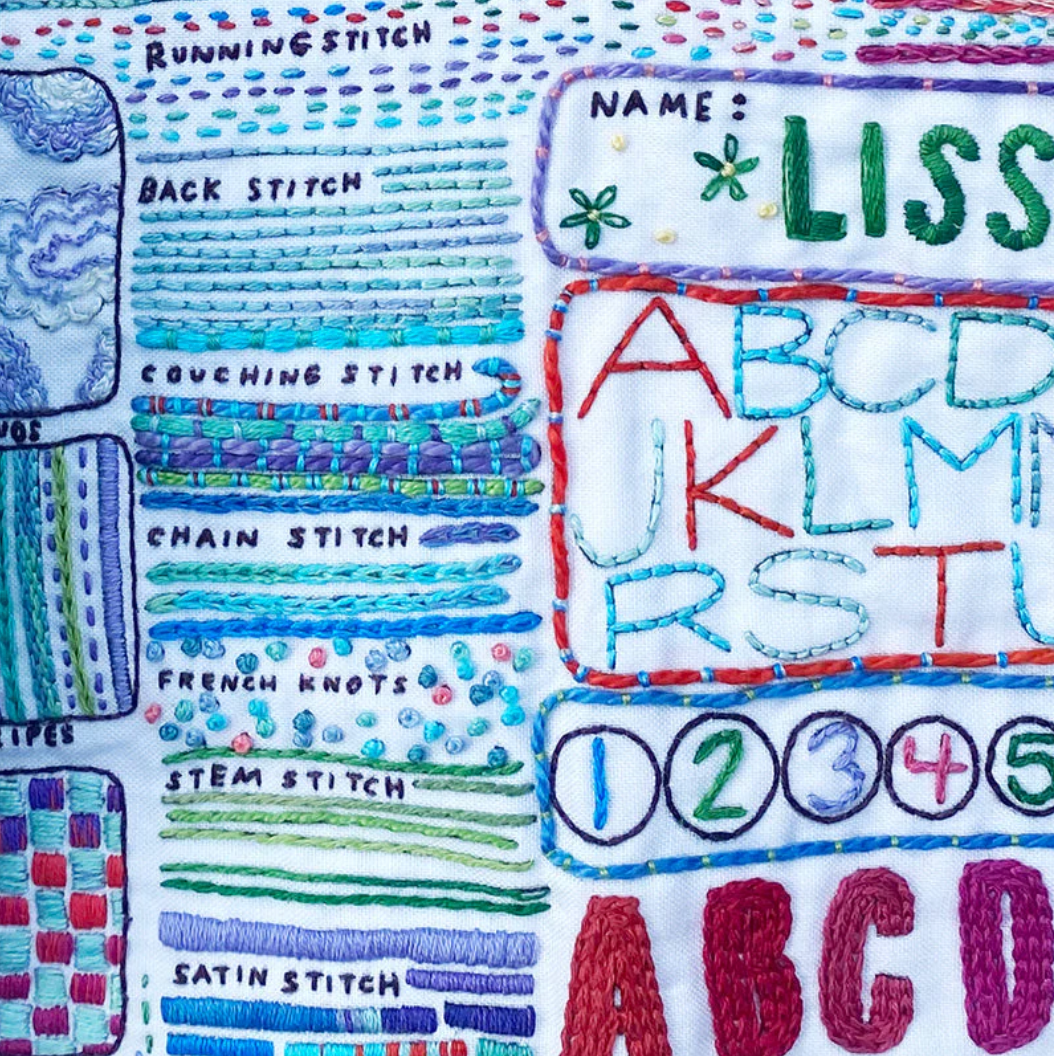 RUNNING STITCH
BACK STITCH
COUCHING STITCH
CHAIN STITCH
FRENCH KNOTS
STEM STITCH
SATIN STITCH
NAME:
LISS
ABCD
JKLM
RST
1 2 3 4 5
ABCD